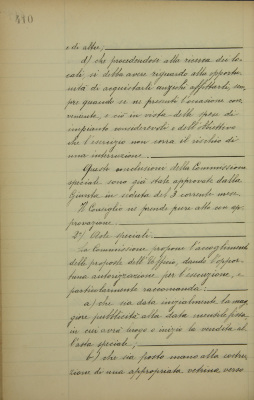 e di altre;
d) che procedendosi alla ricerca dei lo-
cali, si debba avere riguardo alla opportu-
nità di acquistarli anzichè affittarli, sem-
pre quando se ne presenti l'occasione con-
veniente, e ciò in vista delle spese di
impianto considerevoli e dell'obiettivo
che l'esercizio non corra il rischio di
una interruzione.
Queste conclusioni della Commissione
speciale sono già state approvate dalla
Giunta in seduta del 3 corrente mese.
Il Consiglio ne prende pure atto con ap-
provazione.
27) Aste speciali:
La Commissione propone l'accoglimento
delle proposte dell'Ufficio, dando l'oppor-
tuna autorizzazione per l'esecuzione, e
particolarmente raccomanda:
a) che sia data inizialmente la mag-
giore pubblicità alla data mensile fissa,
in cui avrà luogo e inizio la vendita al-
l'asta speciale;
b) che sia posto mano alla costru-
zione di una appropriata vetrina verso